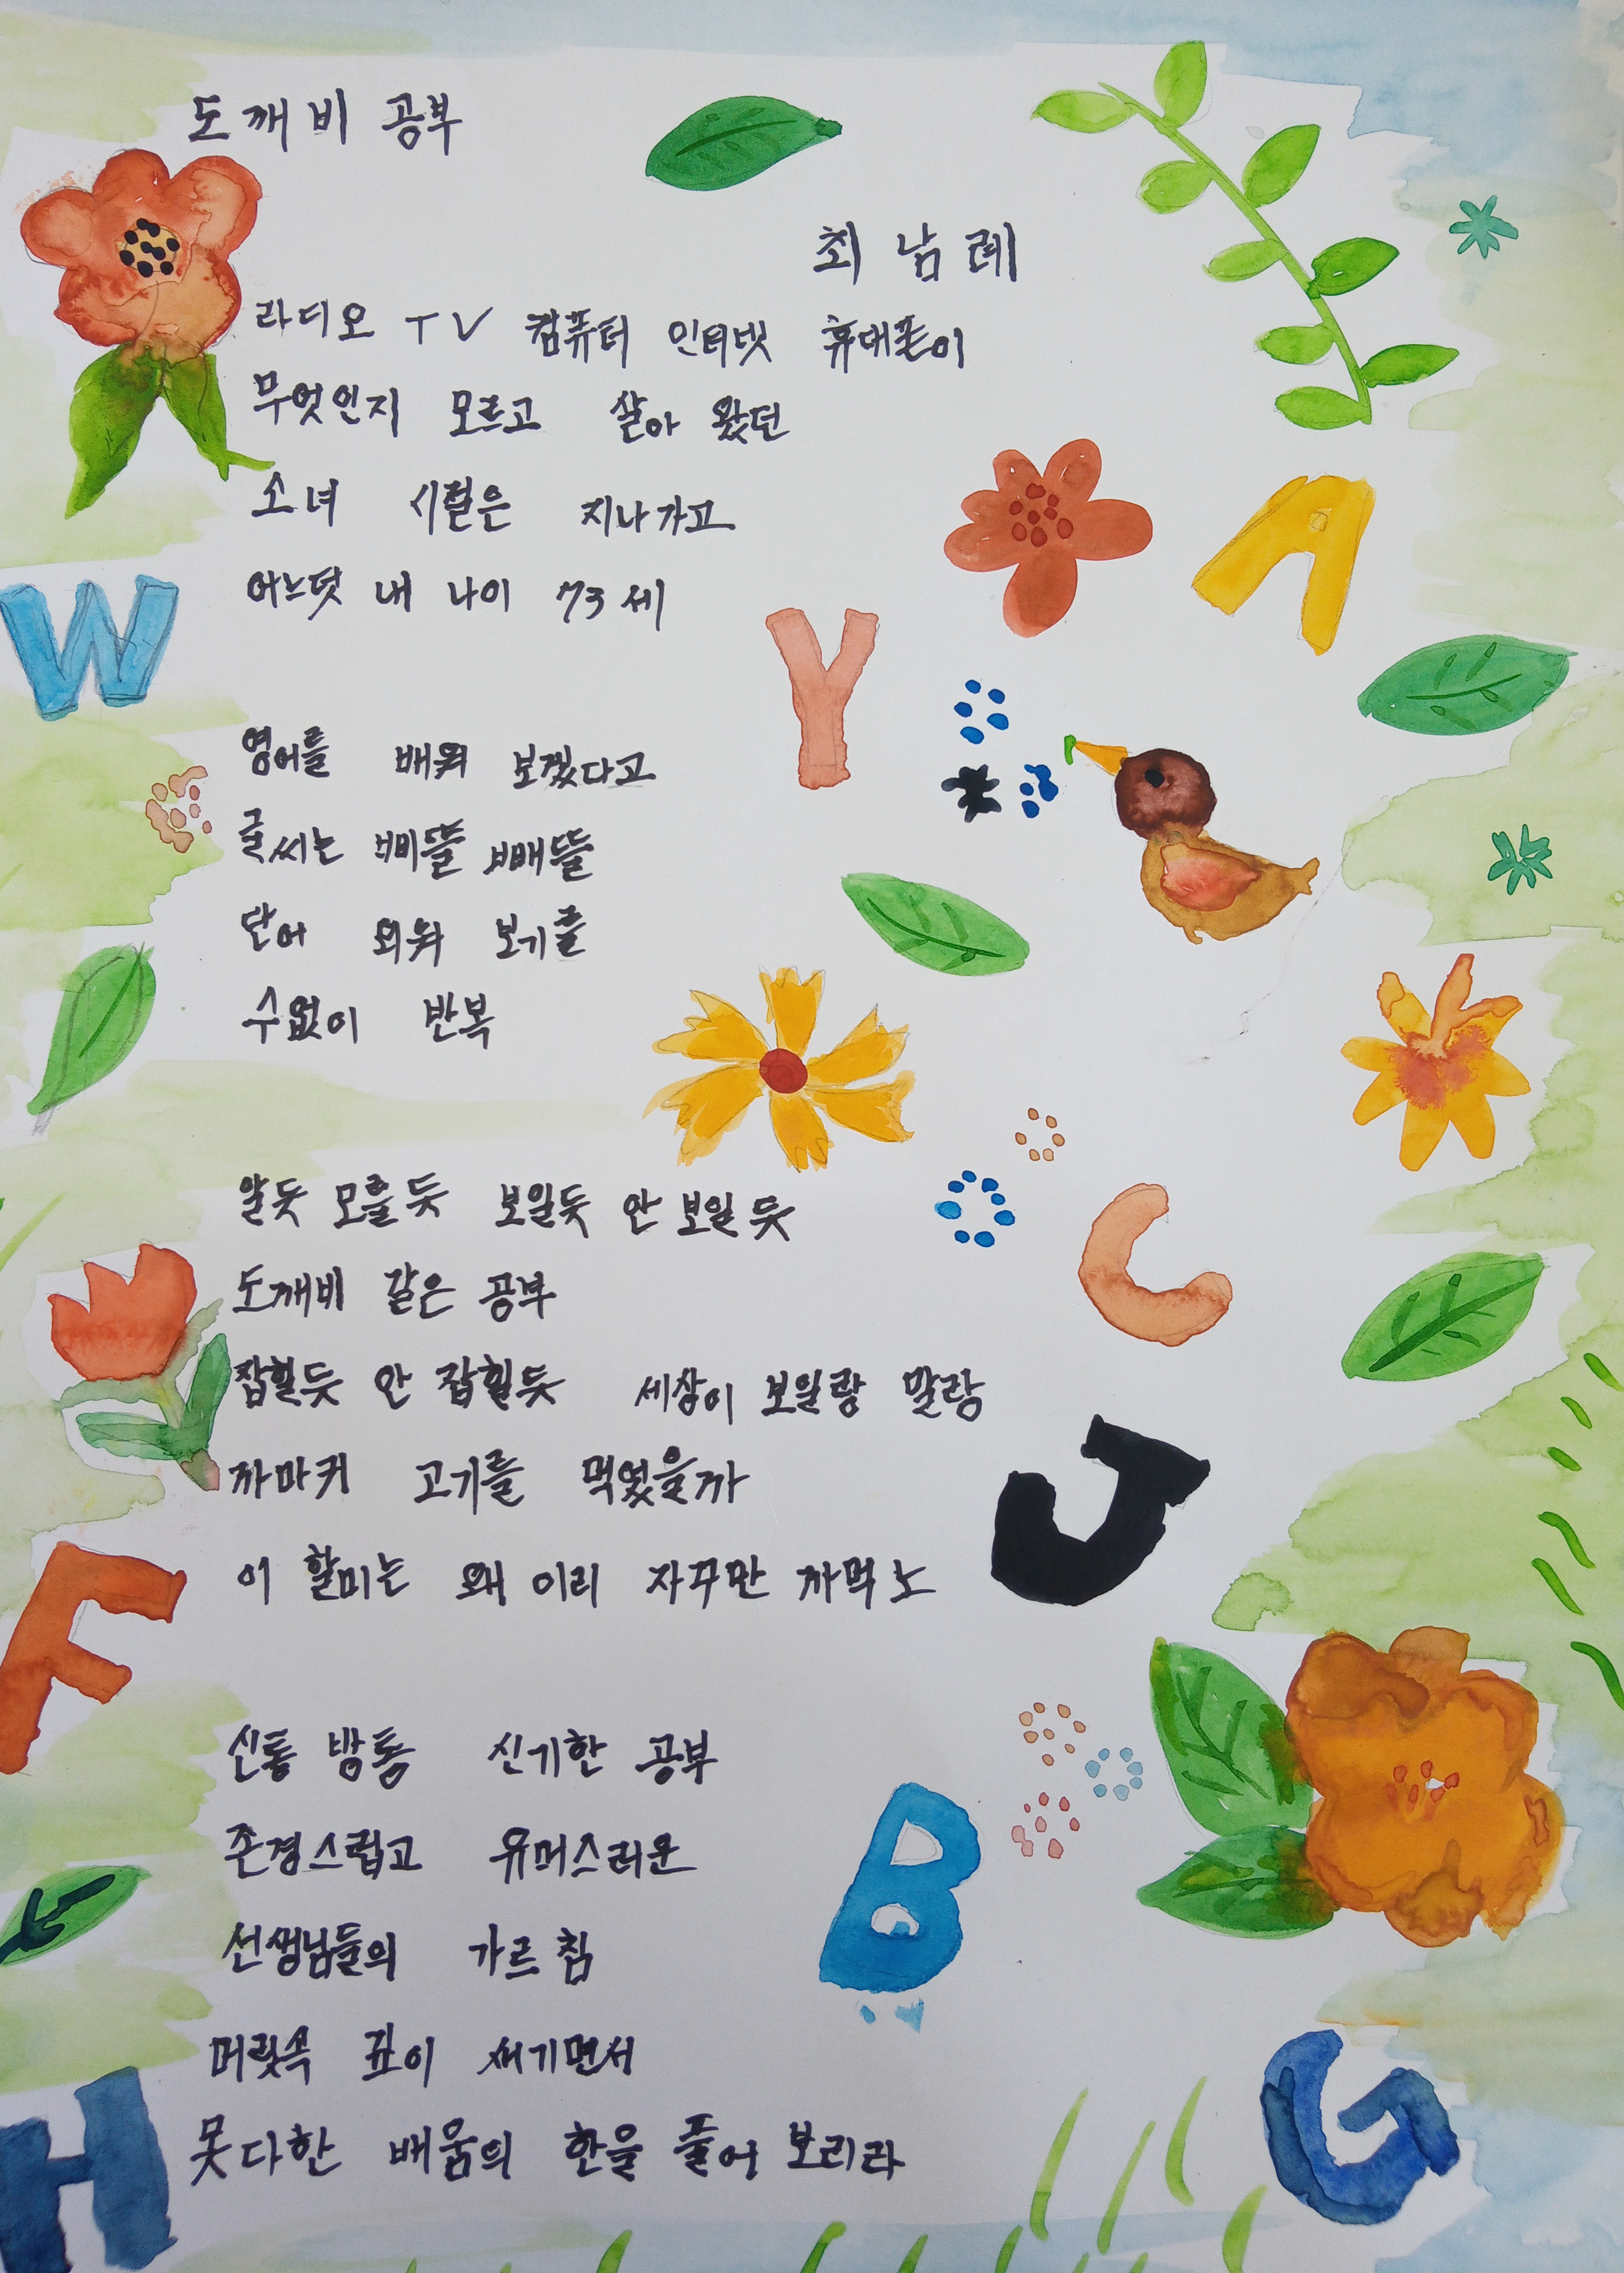 도깨비 공부
최남례
라디오 TV 컴퓨터 인터넷 휴대폰이
무엇인지 모르고 살아 왔던
소녀 시절은 지나가고
어느덧 내 나이 73세
영어를 배워 보겠다고
글씨는 삐뚤 빼뚤
단어 외워 보기를
수없이 반복
알듯 모를듯 보일듯 안 보일 듯
도깨비 같은 공부
잡힐듯 안 잡힐듯 세상이 보일랑 말랑
까마귀 고기를 먹었을까
이 할미는 왜 이리 자꾸만 까먹노
신통 방통 신기한 공부
존경스럽고 유머스러운
선생님들의 가르침
머릿속 깊이 새기면서
못다한 배움의 한을 풀어 보리라
W
Y
A
C
J
F
B
H
G